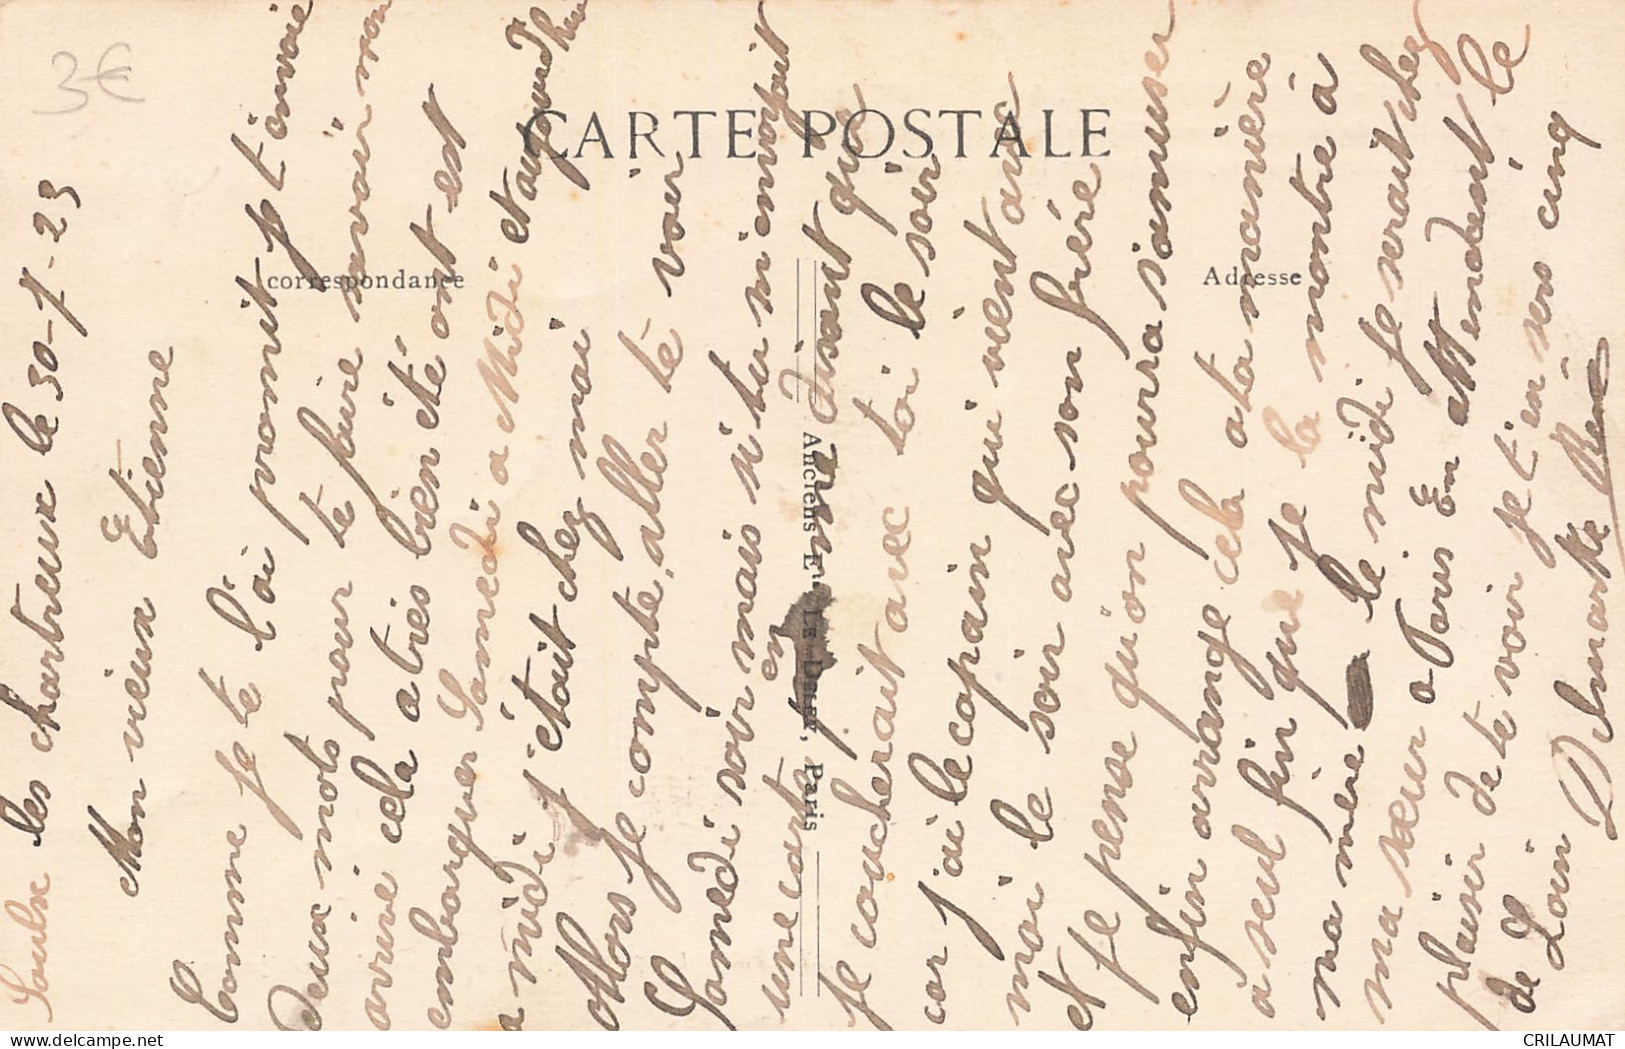 3€
CARTE POSTALE
correspondance
Adresse
Anciens E LE DELEY, Paris
Saulx les chartreux le 30-7-23
Mon vieux Etienne
Comme je te l'ai promit j t'envoie
deux mots pour te faire savoir mon
arrivé cela a très bien été ont est
embarquer Samedi a Midi et aujourd'hui
a midi j'était chez moi
Alors je compte, aller te voir
Samedi soir mais si tu m'envoyait
une carte en me disant que
je coucherait avec toi le soir
car j'ai le copain qui vient avec
moi le soir avec son frère
et je pense qu'on pourra s'amuser
enfin arrange cela a ta manière
a seul fin que je la montre à
ma mère le midi je serait chez
ma sœur a Paris En Attendant le
plaisir de te voir je t'en sers cinq
de Loin Delmarke René
CRILAUMAT